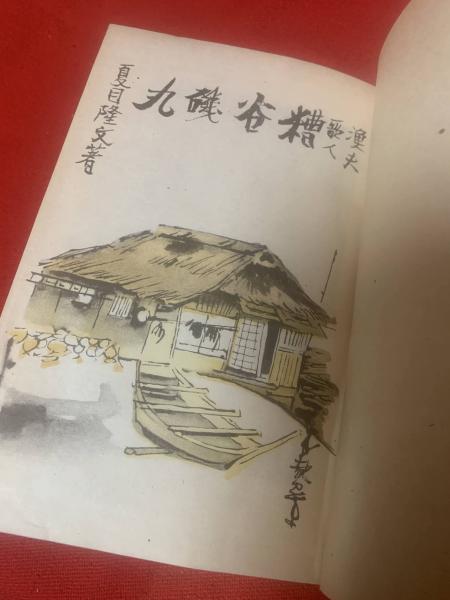 漁夫
歌人
糟谷磯丸
夏目隆文著